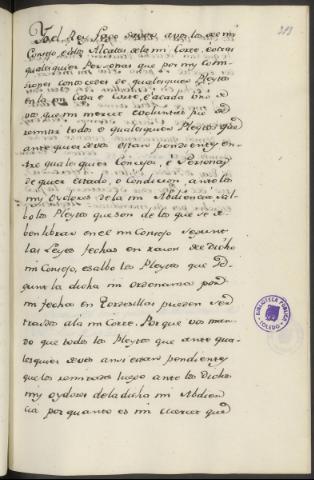 213
Yo el Rey fago saber a vos los de mi
Consejo e a los Alcaldes de la mi Corte, e otras
qualesquier Personas que por my comi-
sion conoscedes de qualesquier Pleytos
en la my Casa e Corte, e a cada uno de
vos que mi merced e voluntad es de
remitir todos e qualesquier Pleytos que
ante qualquier de vos estan pendientes en-
tre qualesquier Concejos, e Personas
de qualquier estado, o Condicion, ante los
my oydores de la mi Abdiencia sal-
bo los Pleytos que son de los que se de-
ben librar en el mi Consejo segunt
las Leyes fechas en razon del dicho
mi Consejo, e salbo los Pleytos que se-
gunt la dicha mi ordenanza por
mi fecha en Tordesillas pueden ser
traidos a la mi Corte. Porque vos man-
do que todos los Pleytos que ante qua-
lesquier de vos ansi estan pendientes
que los remitades luego ante los dichos
my oydores de la dicha mi Abdien-
cia por quanto es mi merced que
BIBLIOTECA PUBLICA
TOLEDO